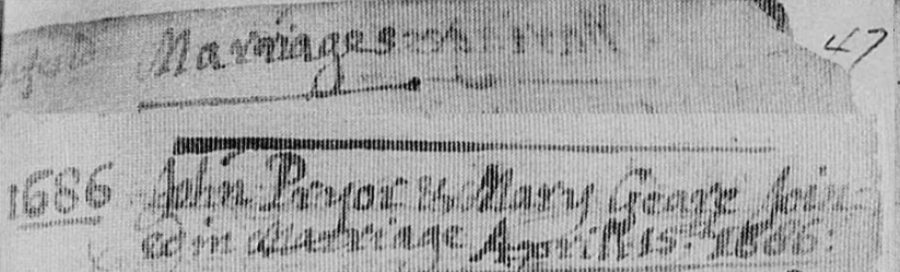 Marriages
47
1686 John Pryor & Mary Geare Join
ed in Marriage Aprill 15. 1686: